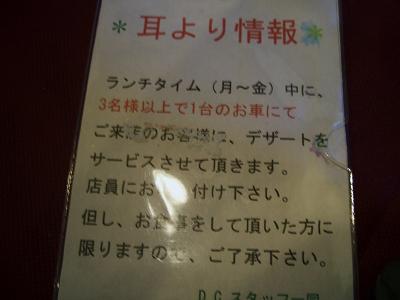 * 耳より情報 *
ランチタイム（月～金）中に、
3名様以上で1台のお車にて
ご来店のお客様に、デザートを
サービスさせて頂きます。
店員にお 付け下さい。
但し、お食事をして頂いた方に
限りますので、ご了承下さい。
D.C.スタッフ一同